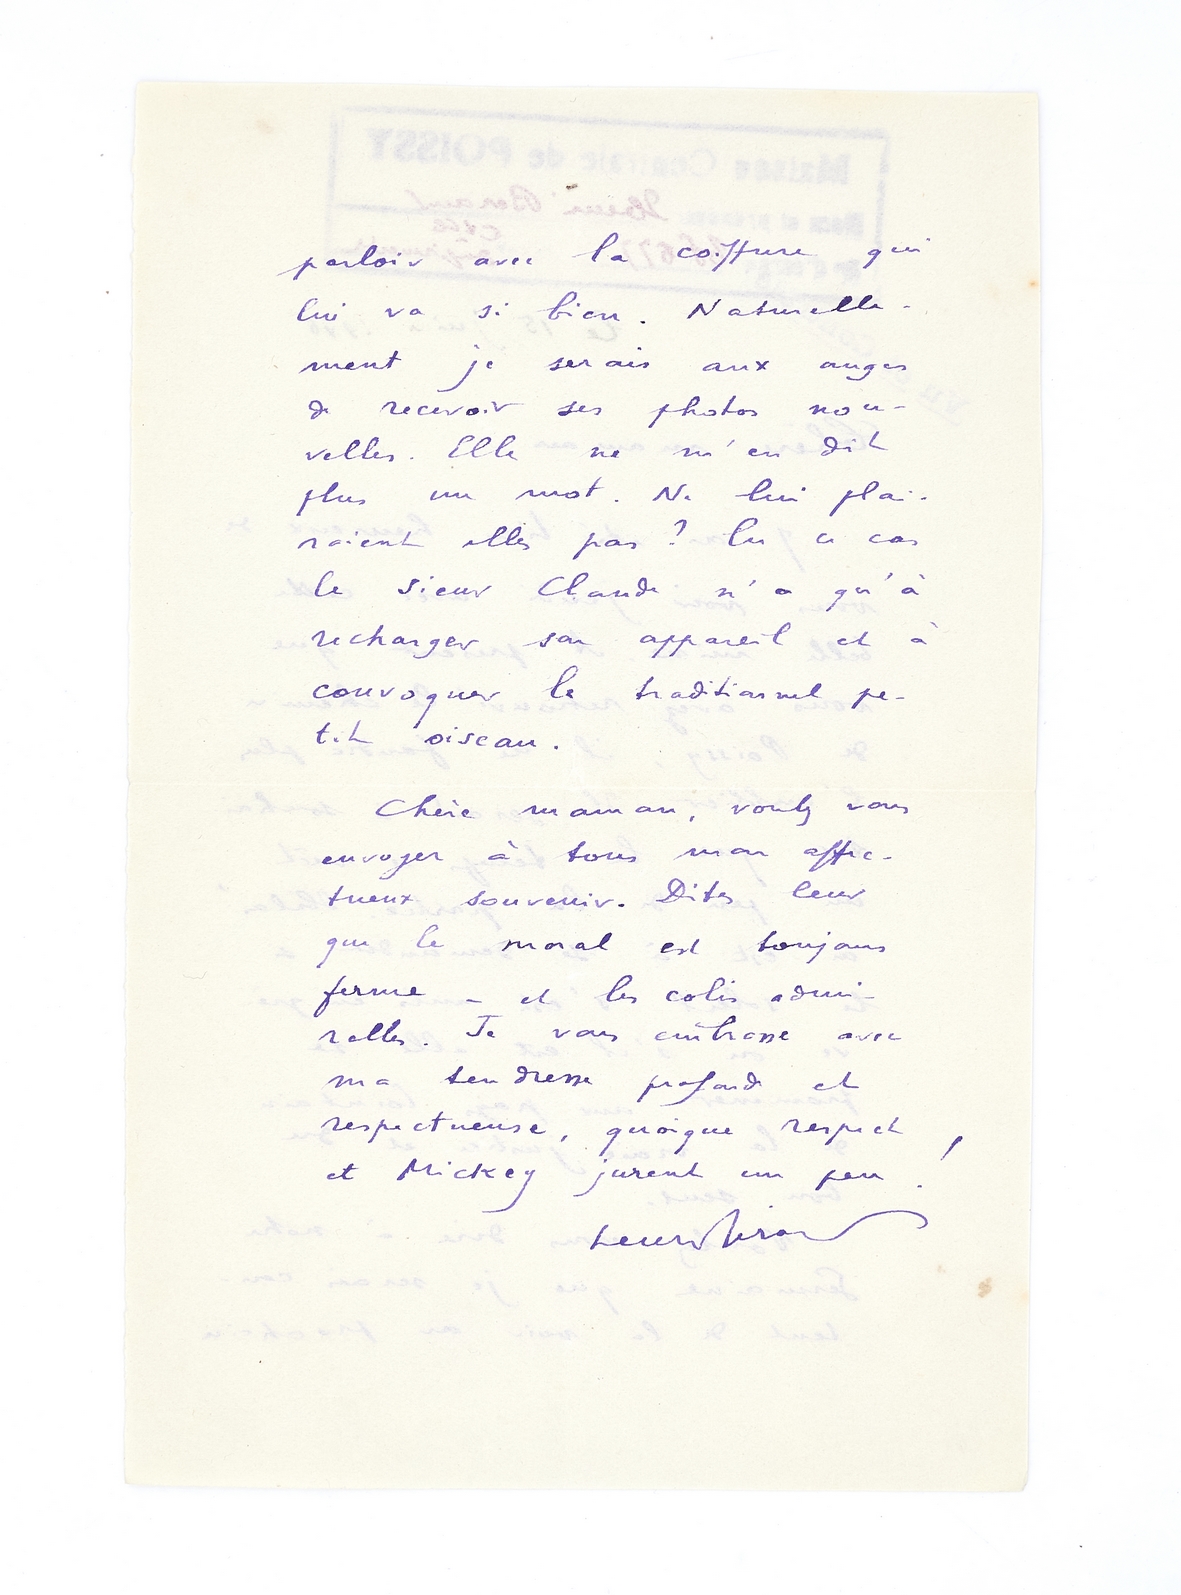 parloir avec la coiffure qui
lui va si bien. Naturelle-
ment je serais aux anges
de recevoir ses photos nou-
velles. Elle ne m'en dit
plus un mot. Ne lui plai-
raient elles pas ? En ce cas
le sieur Claude n'a qu'à
recharger son appareil et à
convoquer le traditionnel pe-
tit oiseau.
Chère maman, voulez vous
envoyer à tous mon affec-
tueux souvenir. Dites leur
que le moral est toujours
ferme – et les colis admi-
rables. Je vous embrasse avec
ma tendresse profonde et
respectueuse, quoique respect
et Mickey jurent un peu !